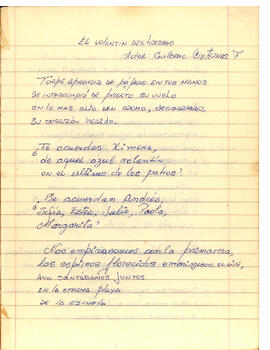 EL VOLANTIN DESTROZADO
Autor Guillermo Cisternas T
TORPE APRENDIZ DE PÁJARO EN TUS MANOS
SE INTERRUMPIÓ DE PRONTO SU VUELO
EN LO MAS ALTO
SU CORAZÓN HERIDO.
¿Te acuerdas Ximena,
de aquel azul volantín
en el último de los patios?
¿Se acuerdan Andrés,
Sofía, Ester, Julio, Paola,
Margarita?
Nos empinábamos con la primavera,
los espinos florecidos el aire,
AUN CANTÁBAMOS JUNTOS
EN LA ETERNA PLAYA
DE LA ESCUELA